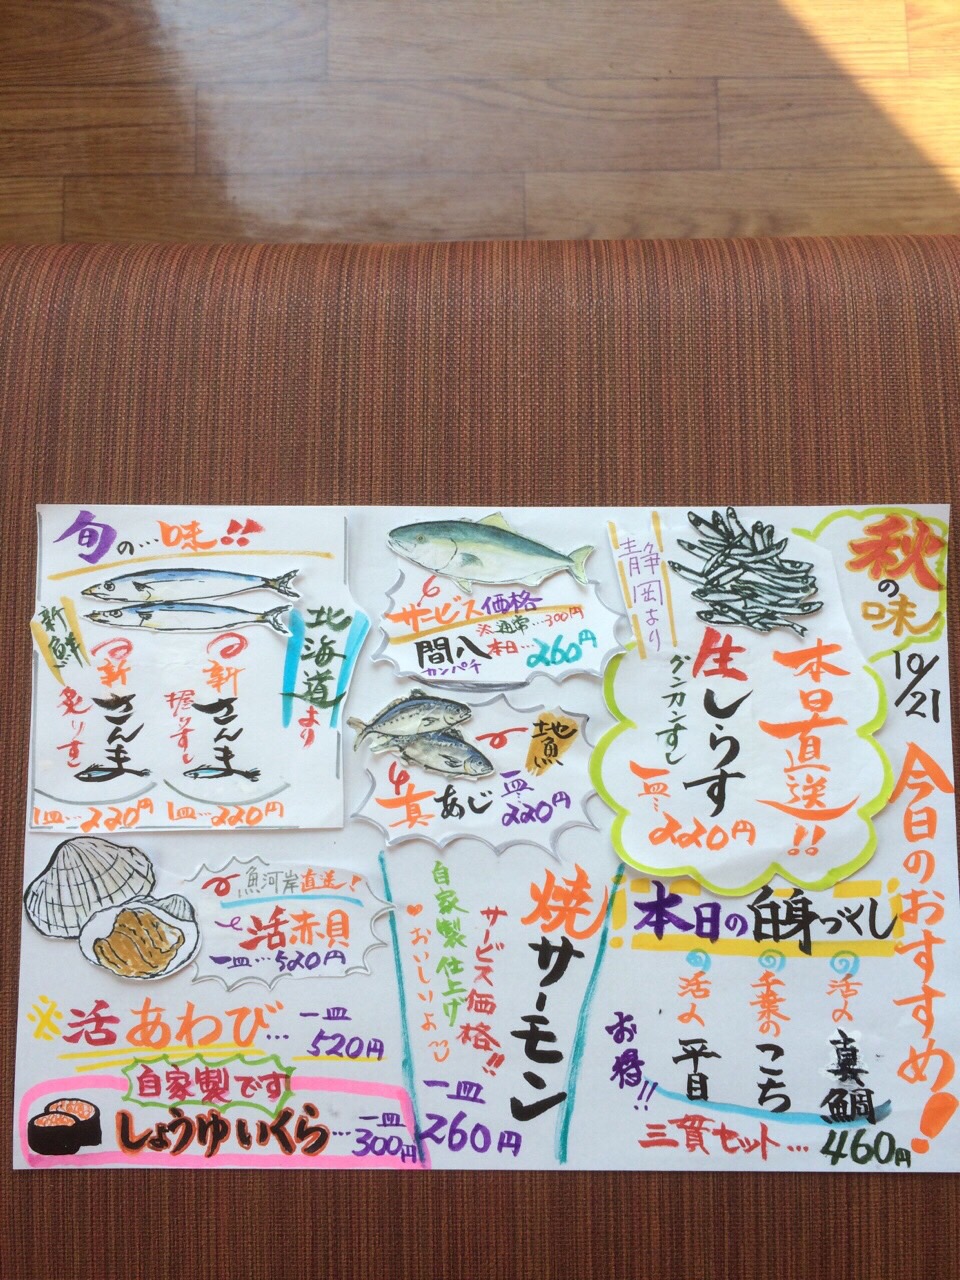 秋の味
10/21
今日のおすすめ!
本日直送!!
生しらす
グンカンすし
一皿…220円
静岡より
サービス価格
※通常…300円
間八
カンパチ
本日…260円
地魚
真あじ
一皿…220円
旬の…味!!
新鮮
北海道より
新さんま
握りすし
1皿…220円
新さんま
炙りすし
1皿…220円
魚河岸直送!
活赤貝
一皿…520円
※活あわび…一皿
520円
自家製です
しょうゆいくら…一皿
300円
焼サーモン
サービス価格!!
自家製仕上げ
♥おいしいよ
一皿
260円
本日の白身づくし
活〆真鯛
千葉のこち
活〆平目
お得!!
三貫セット…460円